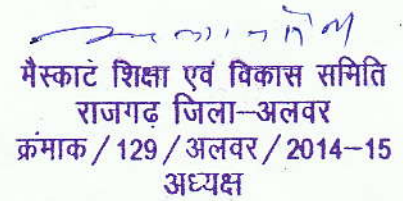 मैस्काट शिक्षा एवं विकास समिति
राजगढ़ जिला–अलवर
क्रंमाक / 129 / अलवर / 2014–15
अध्यक्ष